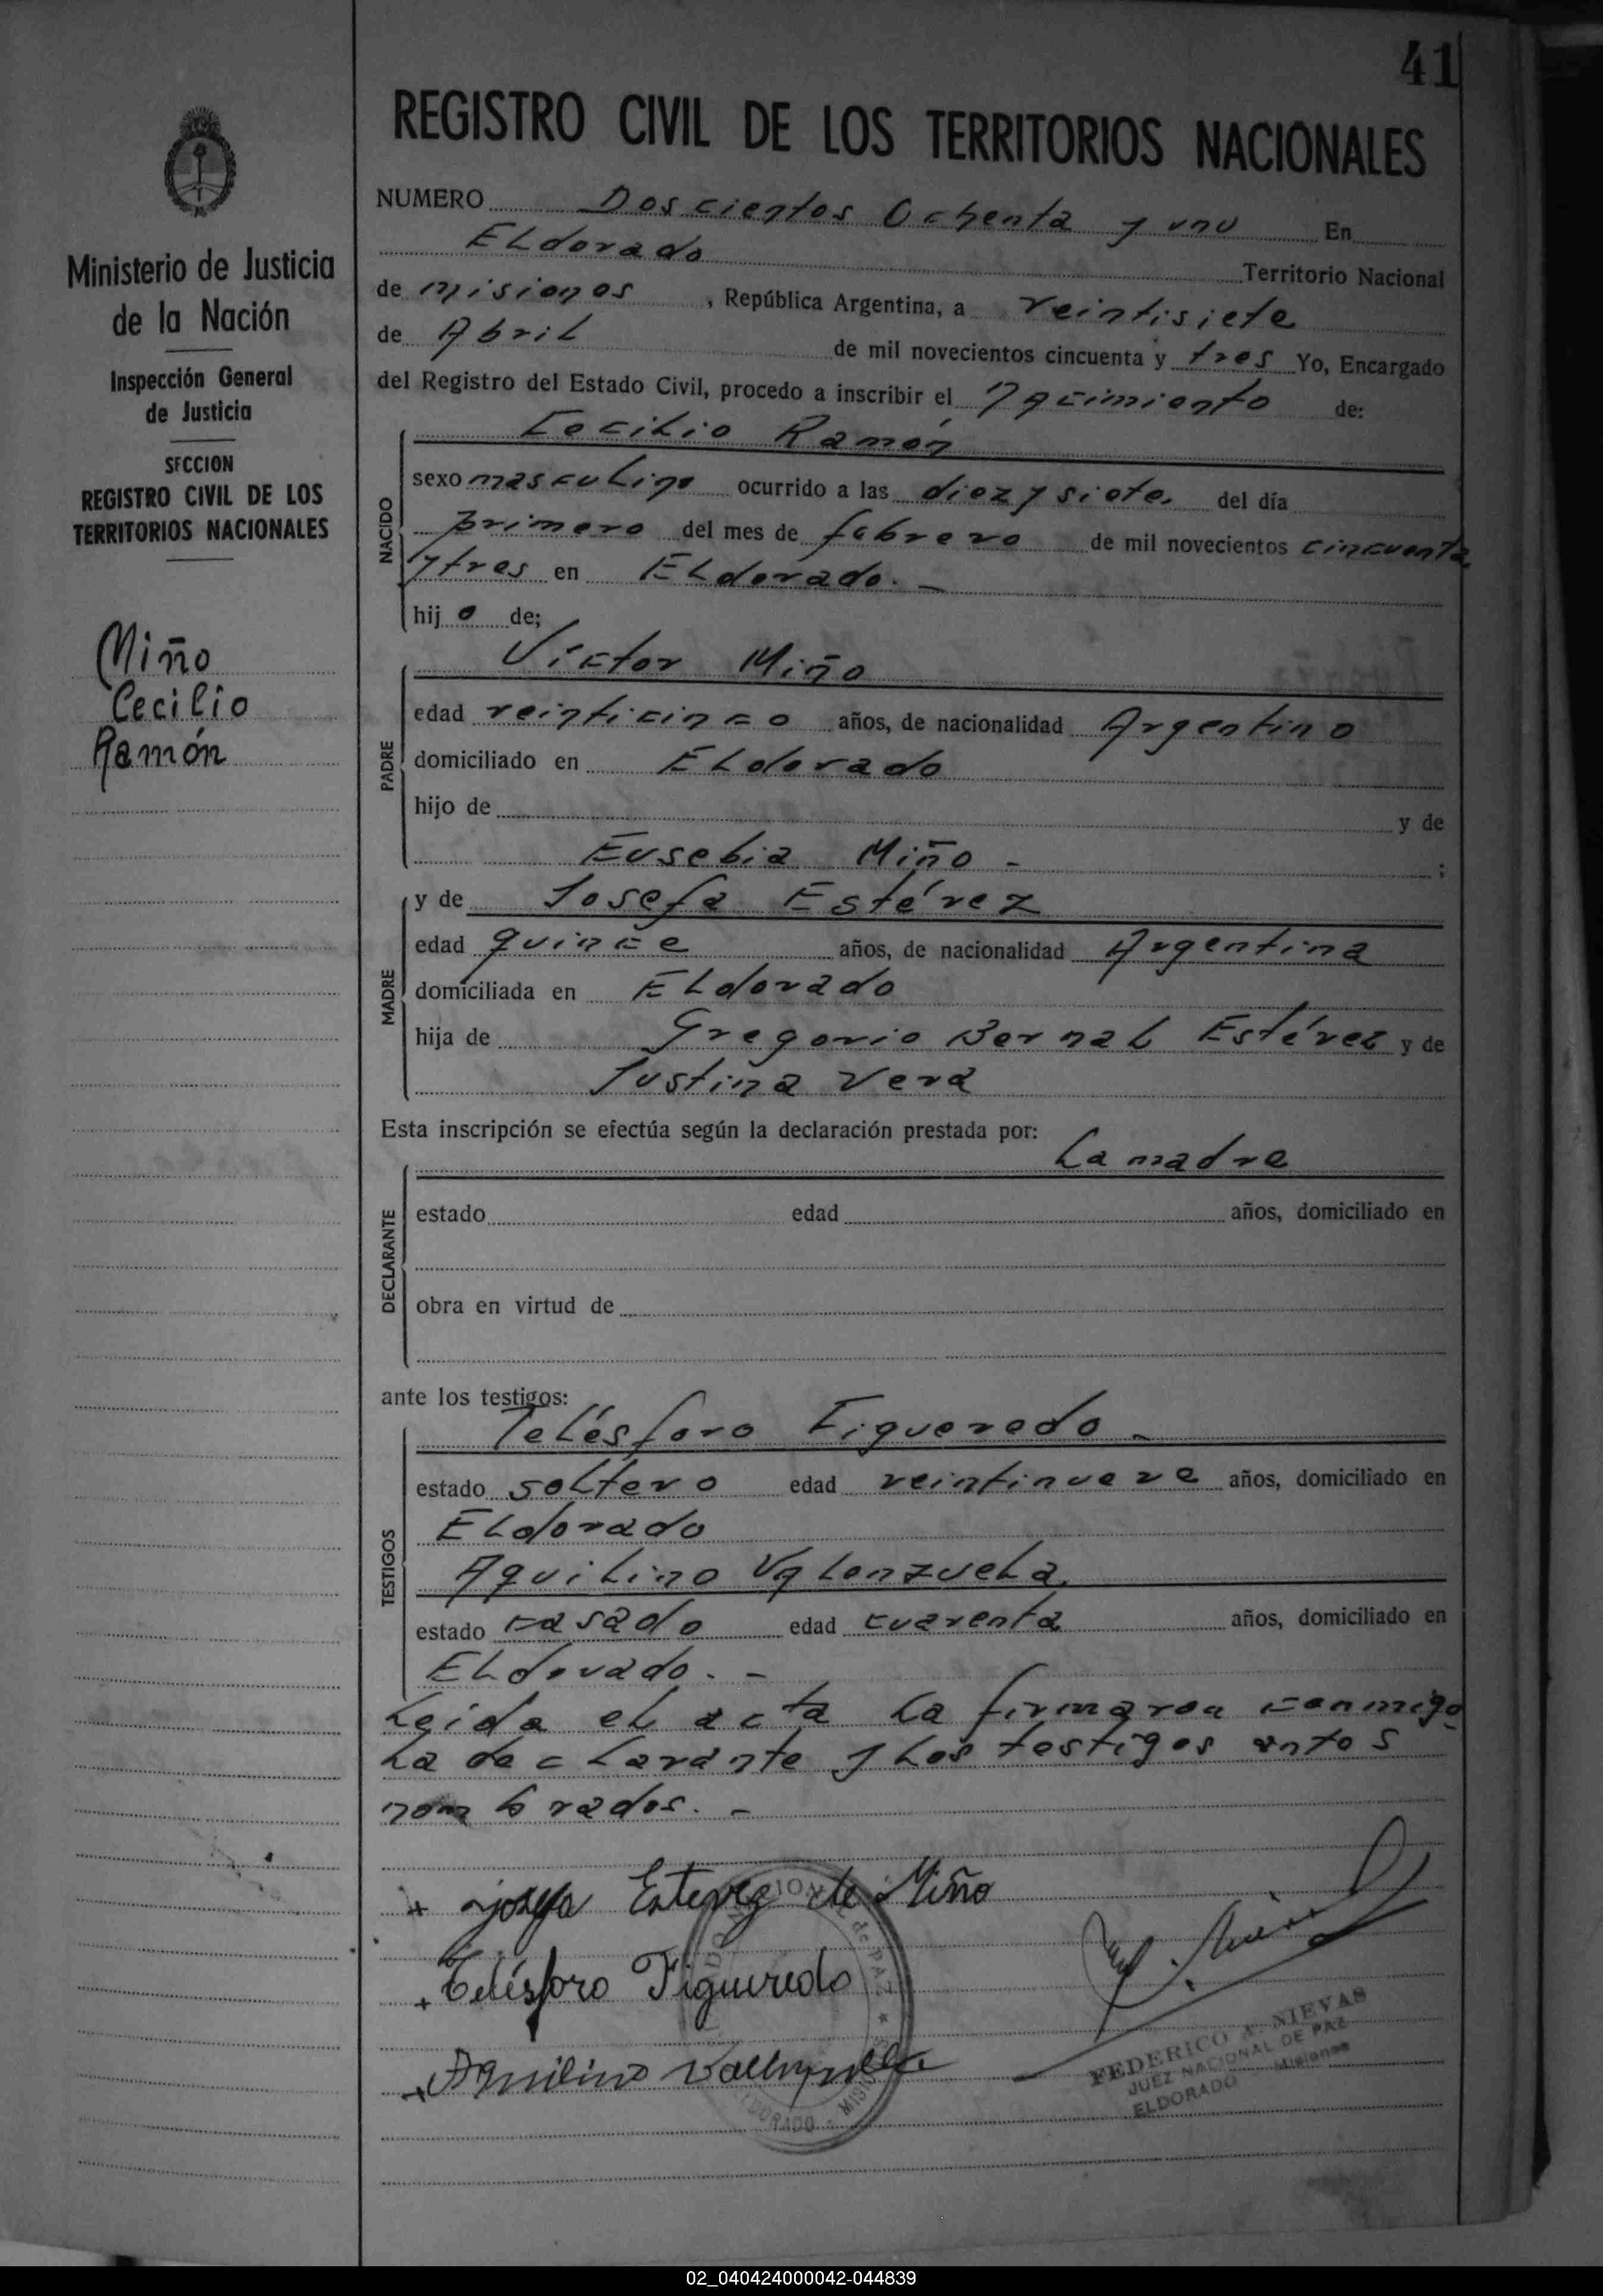 41
REGISTRO CIVIL DE LOS TERRITORIOS NACIONALES
Ministerio de Justicia
de la Nación
Inspección General
de Justicia
SECCION
REGISTRO CIVIL DE LOS
TERRITORIOS NACIONALES
Miño
Cecilio
Ramón
NUMERO Doscientos Ochenta y uno En
ELdorado Territorio Nacional
de misiones, República Argentina, a veintisiete
de Abril de mil novecientos cincuenta y tres Yo, Encargado
del Registro del Estado Civil, procedo a inscribir el nacimiento de:
NACIDO
Cecilio Ramón
sexo masculino ocurrido a las diez y siete. del día
primero del mes de febrero de mil novecientos cincuenta
y tres en ELdorado. -
hijo de;
PADRE
Víctor Miño
edad veinticinco años, de nacionalidad Argentino
domiciliado en ELdorado
hijo de y de
Eusebia Miño - ;
MADRE
y de Josefa Estévez
edad quince años, de nacionalidad Argentina
domiciliada en ELdorado
hija de Gregorio Bernal Estévez y de
Justina Vera
Esta inscripción se efectúa según la declaración prestada por:
DECLARANTE
La madre
estado edad años, domiciliado en
obra en virtud de
ante los testigos:
TESTIGOS
Telésforo Figueredo -
estado soltero edad veintinueve años, domiciliado en
ELdorado
Aquilino Valenzuela
estado casado edad cuarenta años, domiciliado en
ELdorado. -
Leída el acta la firmaron conmigo
la declarante y los testigos antes
nombrados. -
+ Josefa Estevez de Miño
+ Telésforo Figueredo
+ Aquilino Valenzuela
FEDERICO A. NIEVAS
JUEZ NACIONAL DE PAZ
ELDORADO Misiones
02_040424000042-044839